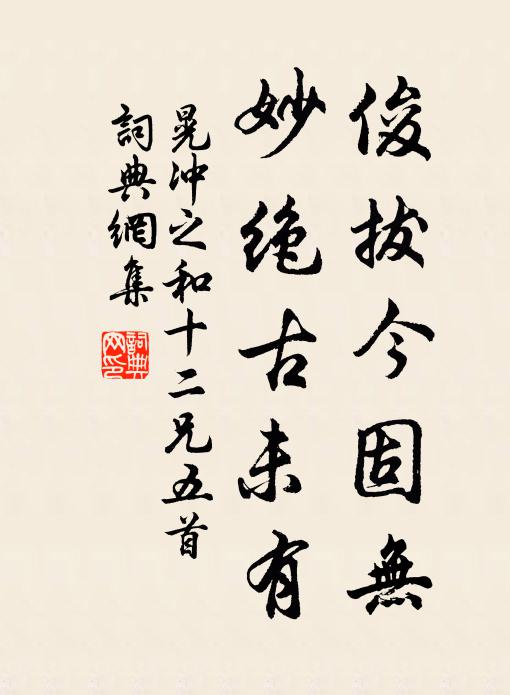 俊拔今固無
妙絕古未有
晁沖之和十二兄五首
詞典網集
詞典網印